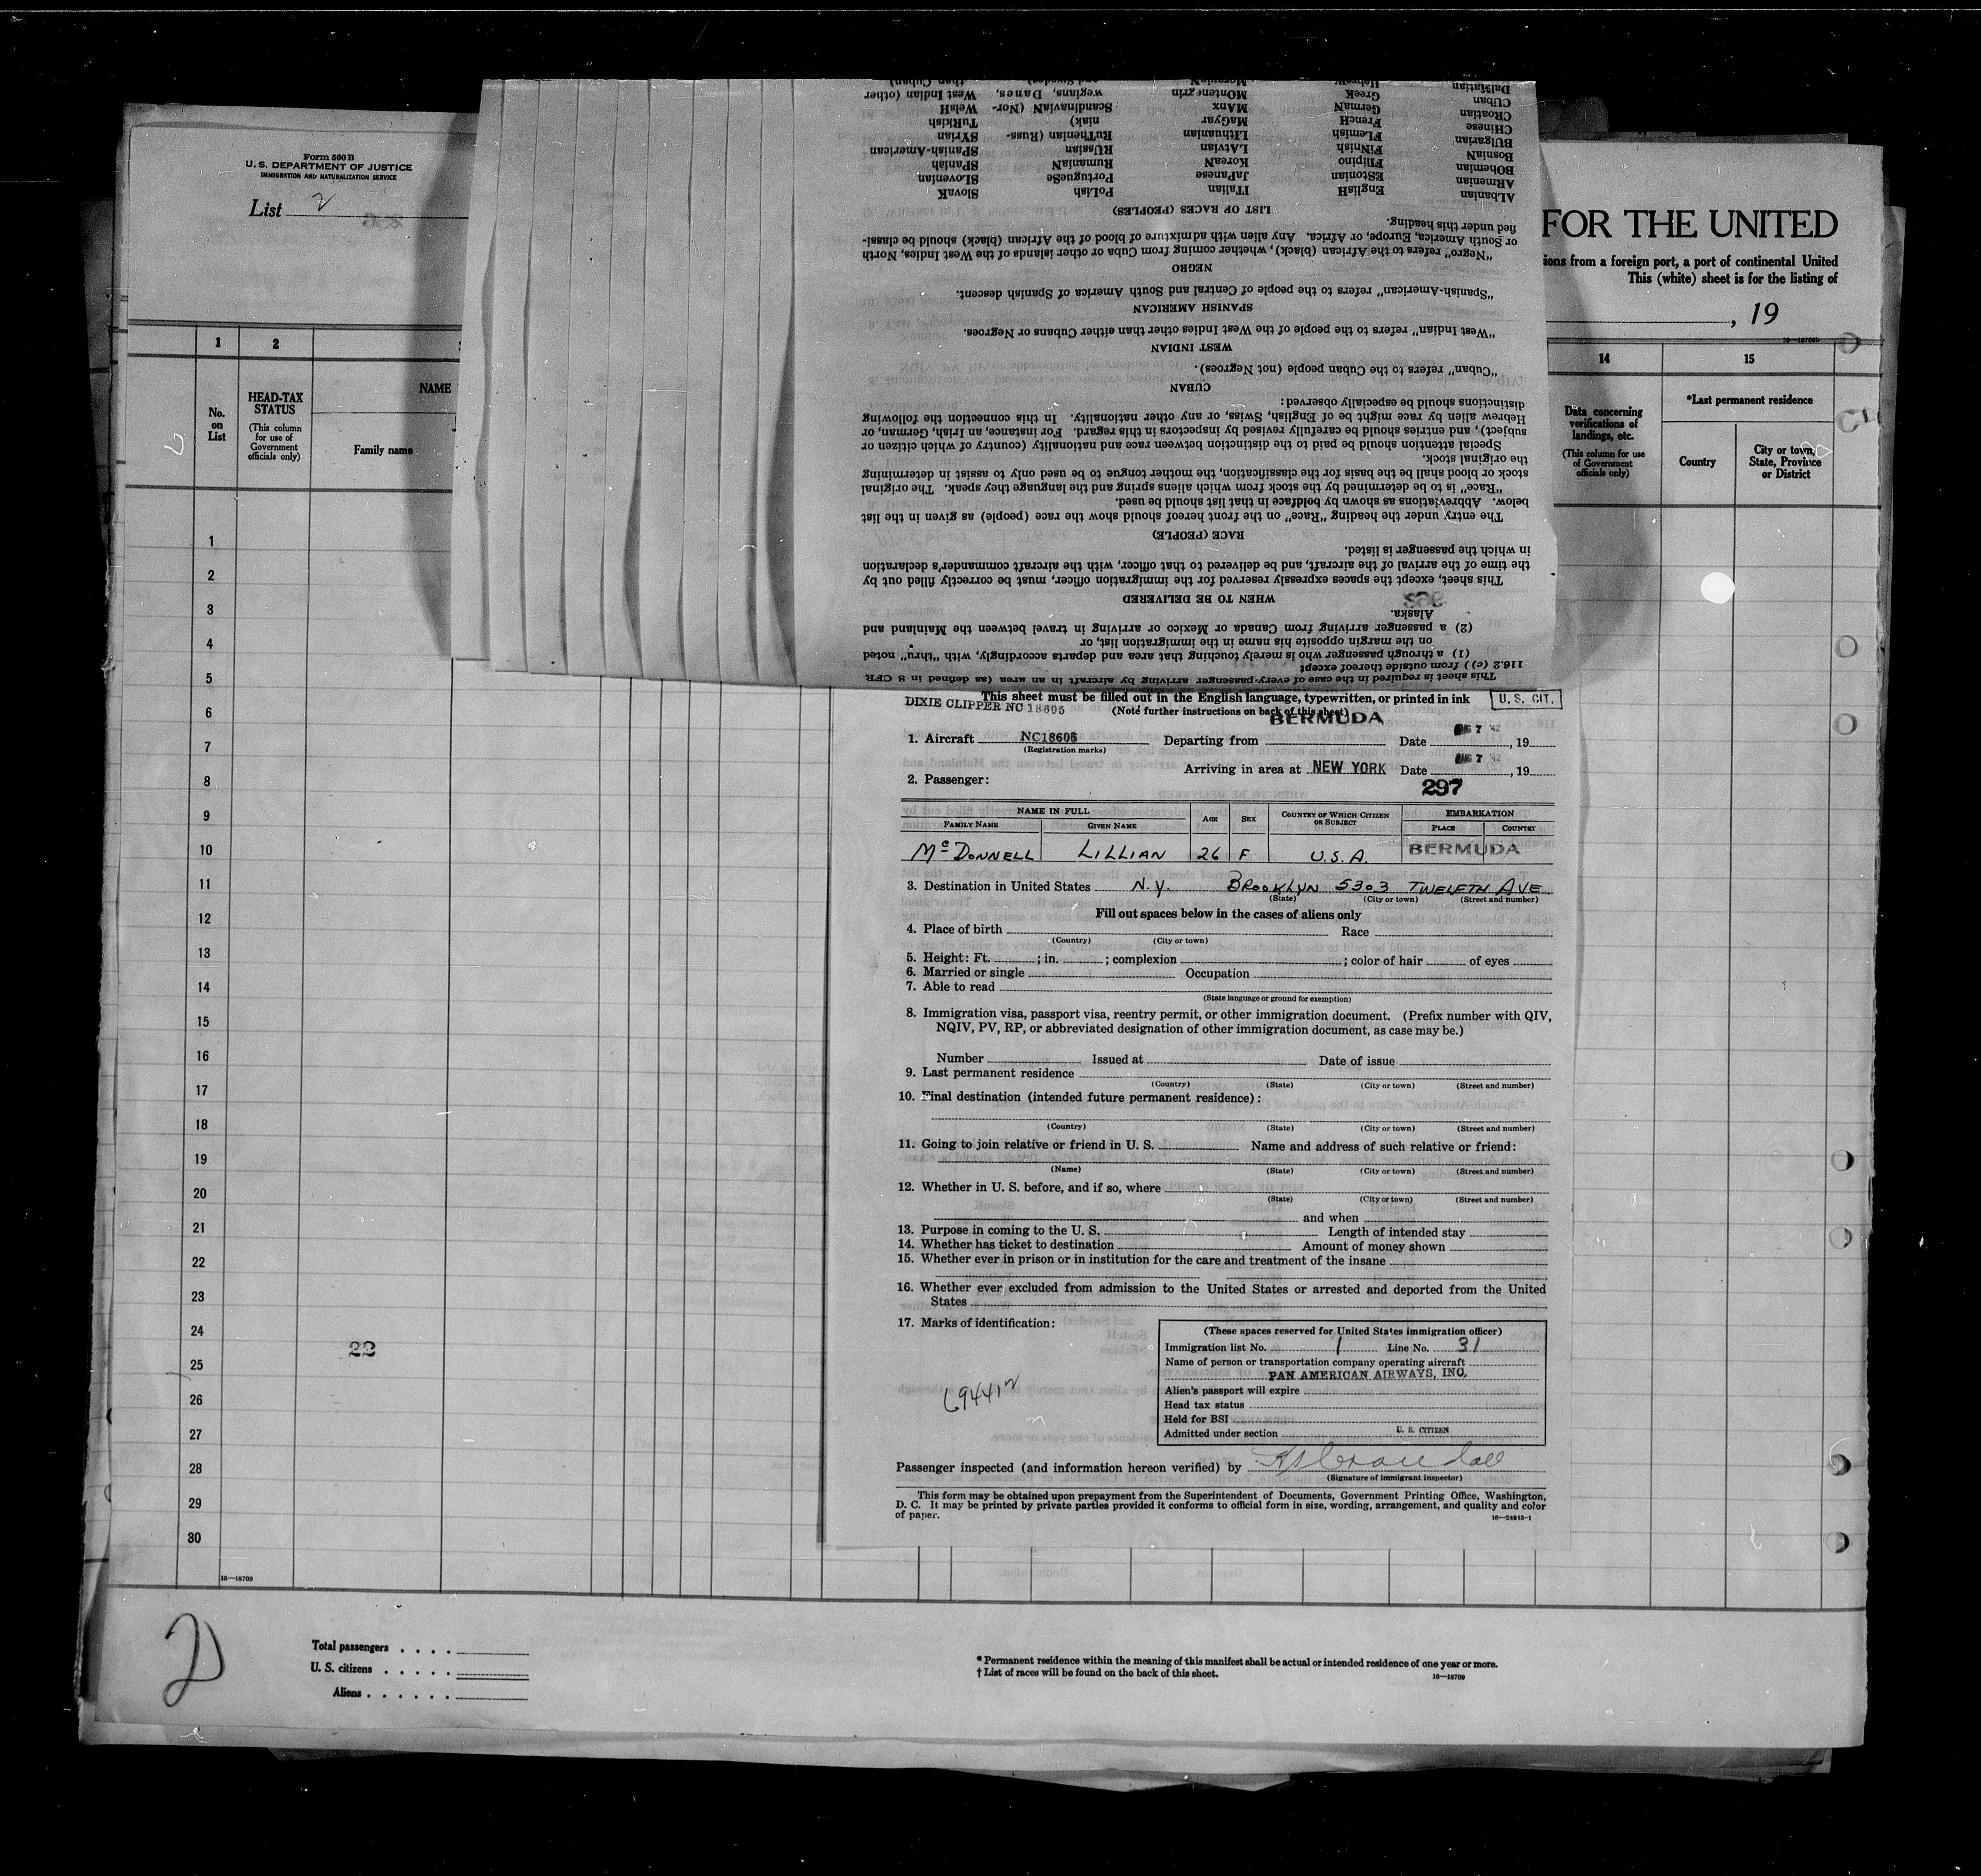 Form 500 B
U. S. DEPARTMENT OF JUSTICE
IMMIGRATION AND NATURALIZATION SERVICE
List 2
FOR THE UNITED
ions from a foreign port, a port of continental United
This (white) sheet is for the listing of
, 19
16—18709b
1 2
No. on List
HEAD-TAX STATUS
(This column for use of Government officials only)
NAME
Family name
14 15
Data concerning verifications of landings, etc.
(This column for use of Government officials only)
*Last permanent residence
Country
City or town, State, Province or District
1
2
3
4
5
6
7
8
9
10
11
12
13
14
15
16
17
18
19
20
21
22
23
24
25
26
27
28
29
30
22
16—18709
2
Total passengers . . . .
U. S. citizens . . . . .
Aliens . . . . . .
* Permanent residence within the meaning of this manifest shall be actual or intended residence of one year or more.
† List of races will be found on the back of this sheet.
16—18709
This sheet is required in the case of every passenger arriving by aircraft in an area (as defined in 8 CFR
116.2 (c)) from outside thereof except
(1) a through passenger who is merely touching that area and departs accordingly, with "thru" noted
on the margin opposite his name in the immigration list, or
(2) a passenger arriving from Canada or Mexico or arriving in travel between the Mainland and
Alaska.
WHEN TO BE DELIVERED
This sheet, except the spaces expressly reserved for the immigration officer, must be correctly filled out by
the time of the arrival of the aircraft, and be delivered to that officer, with the aircraft commander's declaration
in which the passenger is listed.
RACE (PEOPLE)
The entry under the heading "Race" on the front hereof should show the race (people) as given in the list
below. Abbreviations as shown by boldface in that list should be used.
"Race" is to be determined by the stock from which aliens spring and the language they speak. The original
stock or blood shall be the basis for the classification, the mother tongue to be used only to assist in determining
the original stock.
Special attention should be paid to the distinction between race and nationality (country of which citizen or
subject), and entries should be carefully revised by inspectors in this regard. For instance, an Irish, German, or
Hebrew alien by race might be of English, Swiss, or any other nationality. In this connection the following
distinctions should be especially observed:
CUBAN
"Cuban" refers to the Cuban people (not Negroes).
WEST INDIAN
"West Indian" refers to the people of the West Indies other than either Cubans or Negroes.
SPANISH AMERICAN
"Spanish-American" refers to the people of Central and South America of Spanish descent.
NEGRO
"Negro" refers to the African (black), whether coming from Cuba or other islands of the West Indies, North
or South America, Europe, or Africa. Any alien with admixture of blood of the African (black) should be classi-
fied under this heading.
LIST OF RACES (PEOPLES)
ALbanian EnglisH ITalian PoLish SlovaK
ARmenian EStonian JaPanese PortugueSe SLOvenian
BOhemian FIlipino KoreaN RumaniaN SPanish
BosniaN FINnish LAtvian RUssian SPanish-American
BUlgarian FLemish LIthuanian RuThenian (Russ- SYrian
CHinese FrencH MaGyar niak) TuRkish
CRoatian GermaN MAnx ScandinaviaN (Nor- WelsH
CUban GreeK MOntenegrin wegians, Danes, West Indian (other
DalMatian Hebrew MoraviaN and Swedes) than Cuban)
This sheet must be filled out in the English language, typewritten, or printed in ink
U. S. CIT.
DIXIE CLIPPER NC 18605
(Note further instructions on back of this sheet)
BERMUDA
1. Aircraft NC18605 Departing from Date AUG 7 '42, 19
(Registration marks)
Arriving in area at NEW YORK Date AUG 7 '42, 19
2. Passenger:
297
NAME IN FULL
FAMILY NAME GIVEN NAME AGE SEX COUNTRY OF WHICH CITIZEN OR SUBJECT EMBARKATION
PLACE COUNTRY
McDONNELL LILLIAN 26 F U.S.A. BERMUDA
3. Destination in United States N.Y. BROOKLYN 5303 TWELFTH AVE
(State) (City or town) (Street and number)
Fill out spaces below in the cases of aliens only
4. Place of birth Race
(Country) (City or town)
5. Height: Ft. ; in. ; complexion ; color of hair of eyes
6. Married or single Occupation
7. Able to read
(State language or ground for exemption)
8. Immigration visa, passport visa, reentry permit, or other immigration document. (Prefix number with QIV,
NQIV, PV, RP, or abbreviated designation of other immigration document, as case may be.)
Number Issued at Date of issue
9. Last permanent residence
(Country) (State) (City or town) (Street and number)
10. Final destination (intended future permanent residence):
(Country) (State) (City or town) (Street and number)
11. Going to join relative or friend in U. S. Name and address of such relative or friend:
(Name) (State) (City or town) (Street and number)
12. Whether in U. S. before, and if so, where
(State) (City or town) (Street and number)
and when
13. Purpose in coming to the U. S. Length of intended stay
14. Whether has ticket to destination Amount of money shown
15. Whether ever in prison or in institution for the care and treatment of the insane
16. Whether ever excluded from admission to the United States or arrested and deported from the United
States
17. Marks of identification:
(These spaces reserved for United States immigration officer)
Immigration list No. 1 Line No. 31
Name of person or transportation company operating aircraft
PAN AMERICAN AIRWAYS, INC.
Alien's passport will expire
Head tax status
Held for BSI
Admitted under section U. S. CITIZEN
Passenger inspected (and information hereon verified) by
(Signature of immigrant inspector)
This form may be obtained upon prepayment from the Superintendent of Documents, Government Printing Office, Washington,
D. C. It may be printed by private parties provided it conforms to official form in size, wording, arrangement, and quality and color
of paper.
16—24915-1